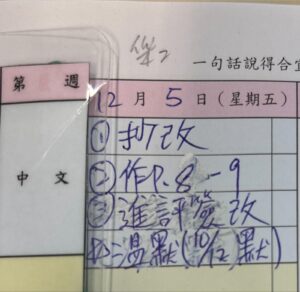 一句話說得合宜
第 週
12月5日(星期五)
中文
① 抄改
② 作P.8-9
③ 進評簽改
溫默(10/12默)